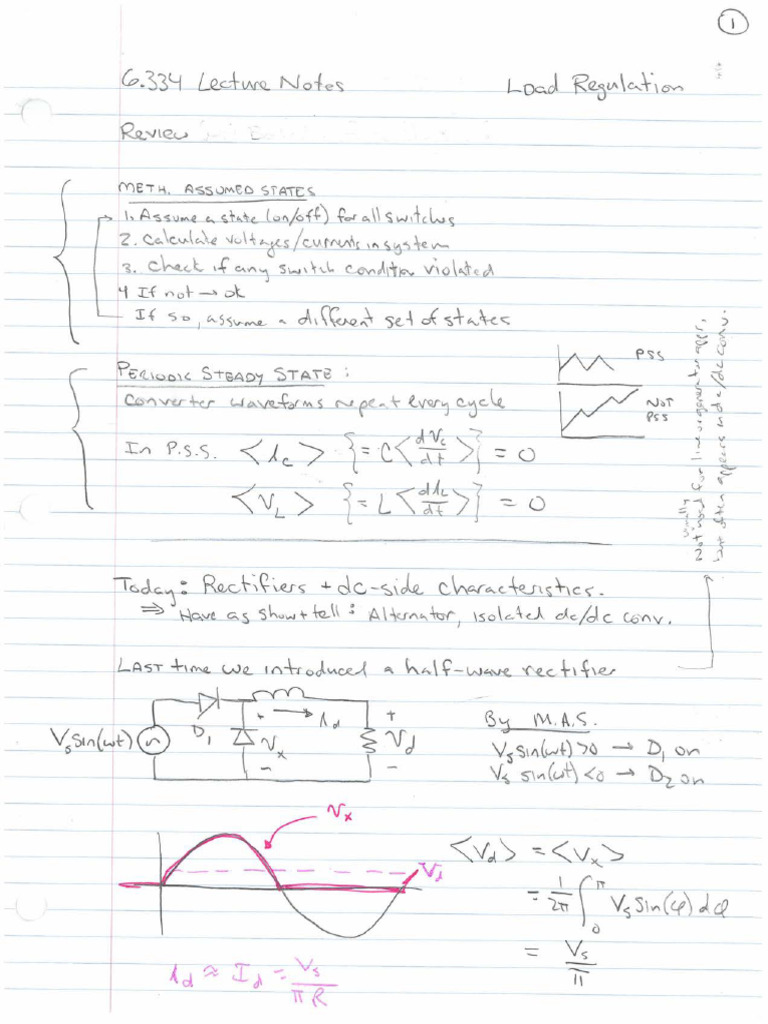 1
6.334 Lecture Notes Load Regulation
Review
METH. ASSUMED STATES
1. Assume a state (on/off) for all switches
2. Calculate voltages/currents in system
3. Check if any switch condition violated
4 If not → ok
If so, assume a different set of states
PERIODIC STEADY STATE:
Converter waveforms repeat every cycle
PSS
NOT
PSS
In P.S.S. <i_c> {= C<dV_c/dt>} = 0
<V_L> {= L<di_L/dt>} = 0
Usually
Not used for line or generator appl.
but often appears in dc/dc conv.
Today: Rectifiers + dc-side characteristics.
⇒ Have as show + tell: Alternator, isolated dc/dc conv.
LAST time we introduced a half-wave rectifier
V_s sin(ωt) D_1 + V_x − i_d + V_d −
By M.A.S.
V_s sin(ωt) >0 → D_1 on
V_s sin(ωt) <0 → D_2 on
V_x
V_d
<V_d> = <V_x>
= 1/2π ∫_0^π V_s sin(φ) dφ
= V_s/π
i_d ≈ I_d = V_s/πR